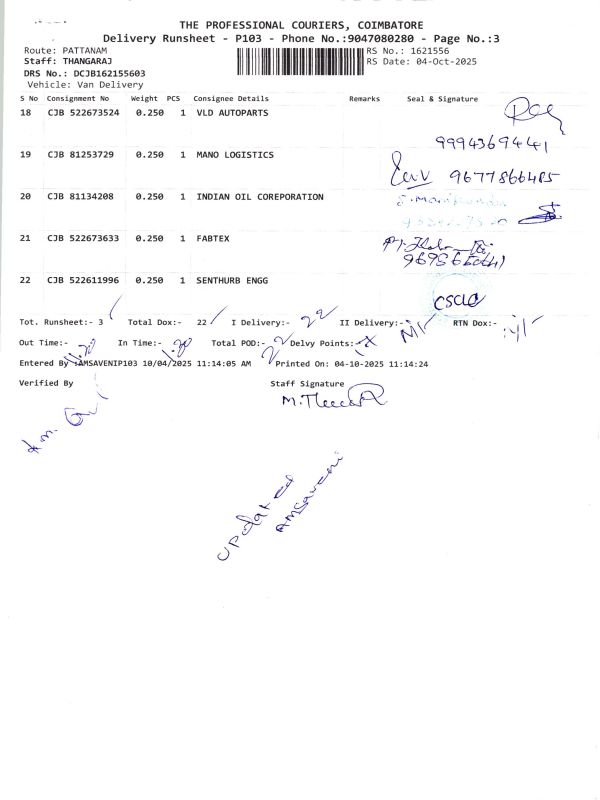 THE PROFESSIONAL COURIERS, COIMBATORE
Delivery Runsheet - P103 - Phone No.:9047080280 - Page No.:3
Route: PATTANAM RS No.: 1621556
Staff: THANGARAJ RS Date: 04-Oct-2025
DRS No.: DCJB162155603
Vehicle: Van Delivery
S No Consignment No Weight PCS Consignee Details Remarks Seal & Signature
18 CJB 522673524 0.250 1 VLD AUTOPARTS
9994369441
19 CJB 81253729 0.250 1 MANO LOGISTICS
9677866485
20 CJB 81134208 0.250 1 INDIAN OIL COREPORATION
21 CJB 522673633 0.250 1 FABTEX
22 CJB 522611996 0.250 1 SENTHURB ENGG
Tot. Runsheet:- 3 Total Dox:- 22 I Delivery:- 22 II Delivery:- RTN Dox:-
Out Time:- In Time:- Total POD:- 22 Delvy Points:-
Entered By :AMSAVENIP103 10/04/2025 11:14:05 AM Printed On: 04-10-2025 11:14:24
Verified By Staff Signature
updated
Amsaveni